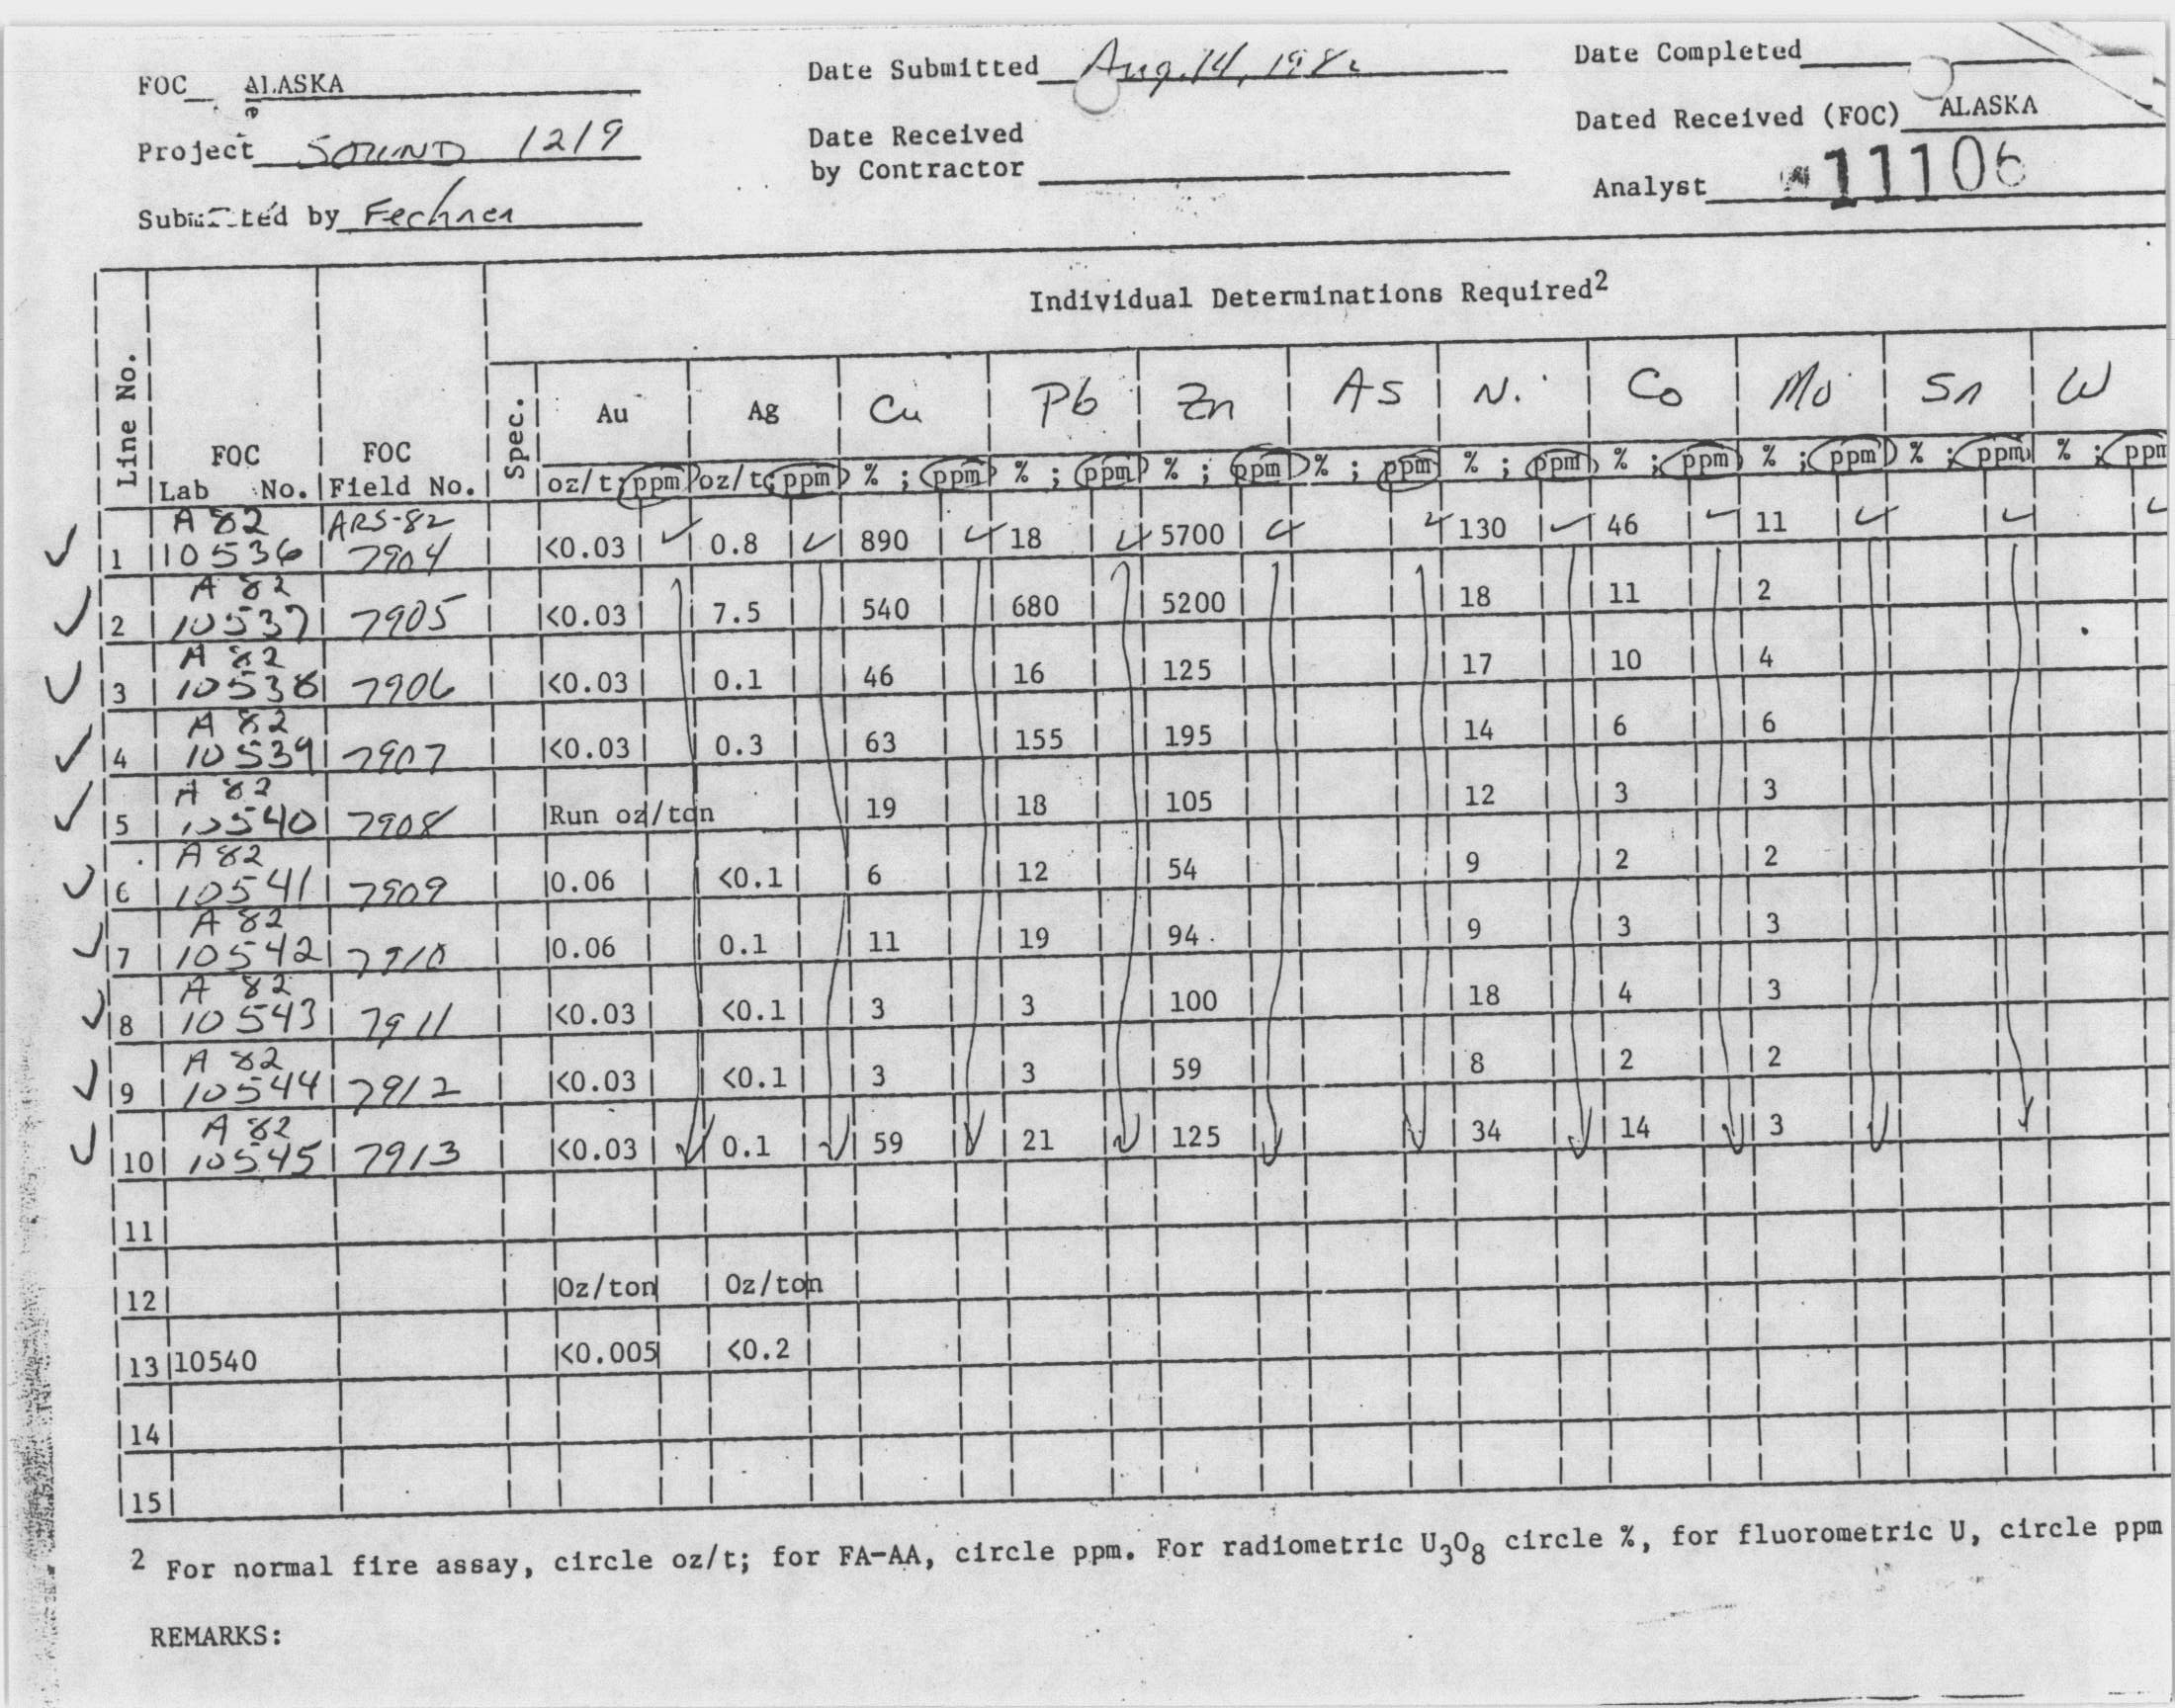 FOC ALASKA
Project SOUND 1219
Submitted by Fechner
Date Submitted Aug. 14, 1982
Date Received
by Contractor
Date Completed
Dated Received (FOC) ALASKA
Analyst 11106
Individual Determinations Required2
Line No. FOC Lab No. FOC Field No. Spec. Au Ag Cu Pb Zn As Ni Co Mo Sn W
oz/t; ppm oz/t; ppm % ; ppm % ; ppm % ; ppm % ; ppm % ; ppm % ; ppm % ; ppm % ; ppm % ; ppm
A 82 ARS-82
1 10536 7904 <0.03 0.8 890 18 5700 130 46 11
A 82
2 10537 7905 <0.03 7.5 540 680 5200 18 11 2
A 82
3 10538 7906 <0.03 0.1 46 16 125 17 10 4
A 82
4 10539 7907 <0.03 0.3 63 155 195 14 6 6
A 82
5 10540 7908 Run oz/ton 19 18 105 12 3 3
A 82
6 10541 7909 0.06 <0.1 6 12 54 9 2 2
A 82
7 10542 7910 0.06 0.1 11 19 94 9 3 3
A 82
8 10543 7911 <0.03 <0.1 3 3 100 18 4 3
A 82
9 10544 7912 <0.03 <0.1 3 3 59 8 2 2
A 82
10 10545 7913 <0.03 0.1 59 21 125 34 14 3
11
12 Oz/ton Oz/ton
13 10540 <0.005 <0.2
14
15
2 For normal fire assay, circle oz/t; for FA-AA, circle ppm. For radiometric U3O8 circle %, for fluorometric U, circle ppm
REMARKS: